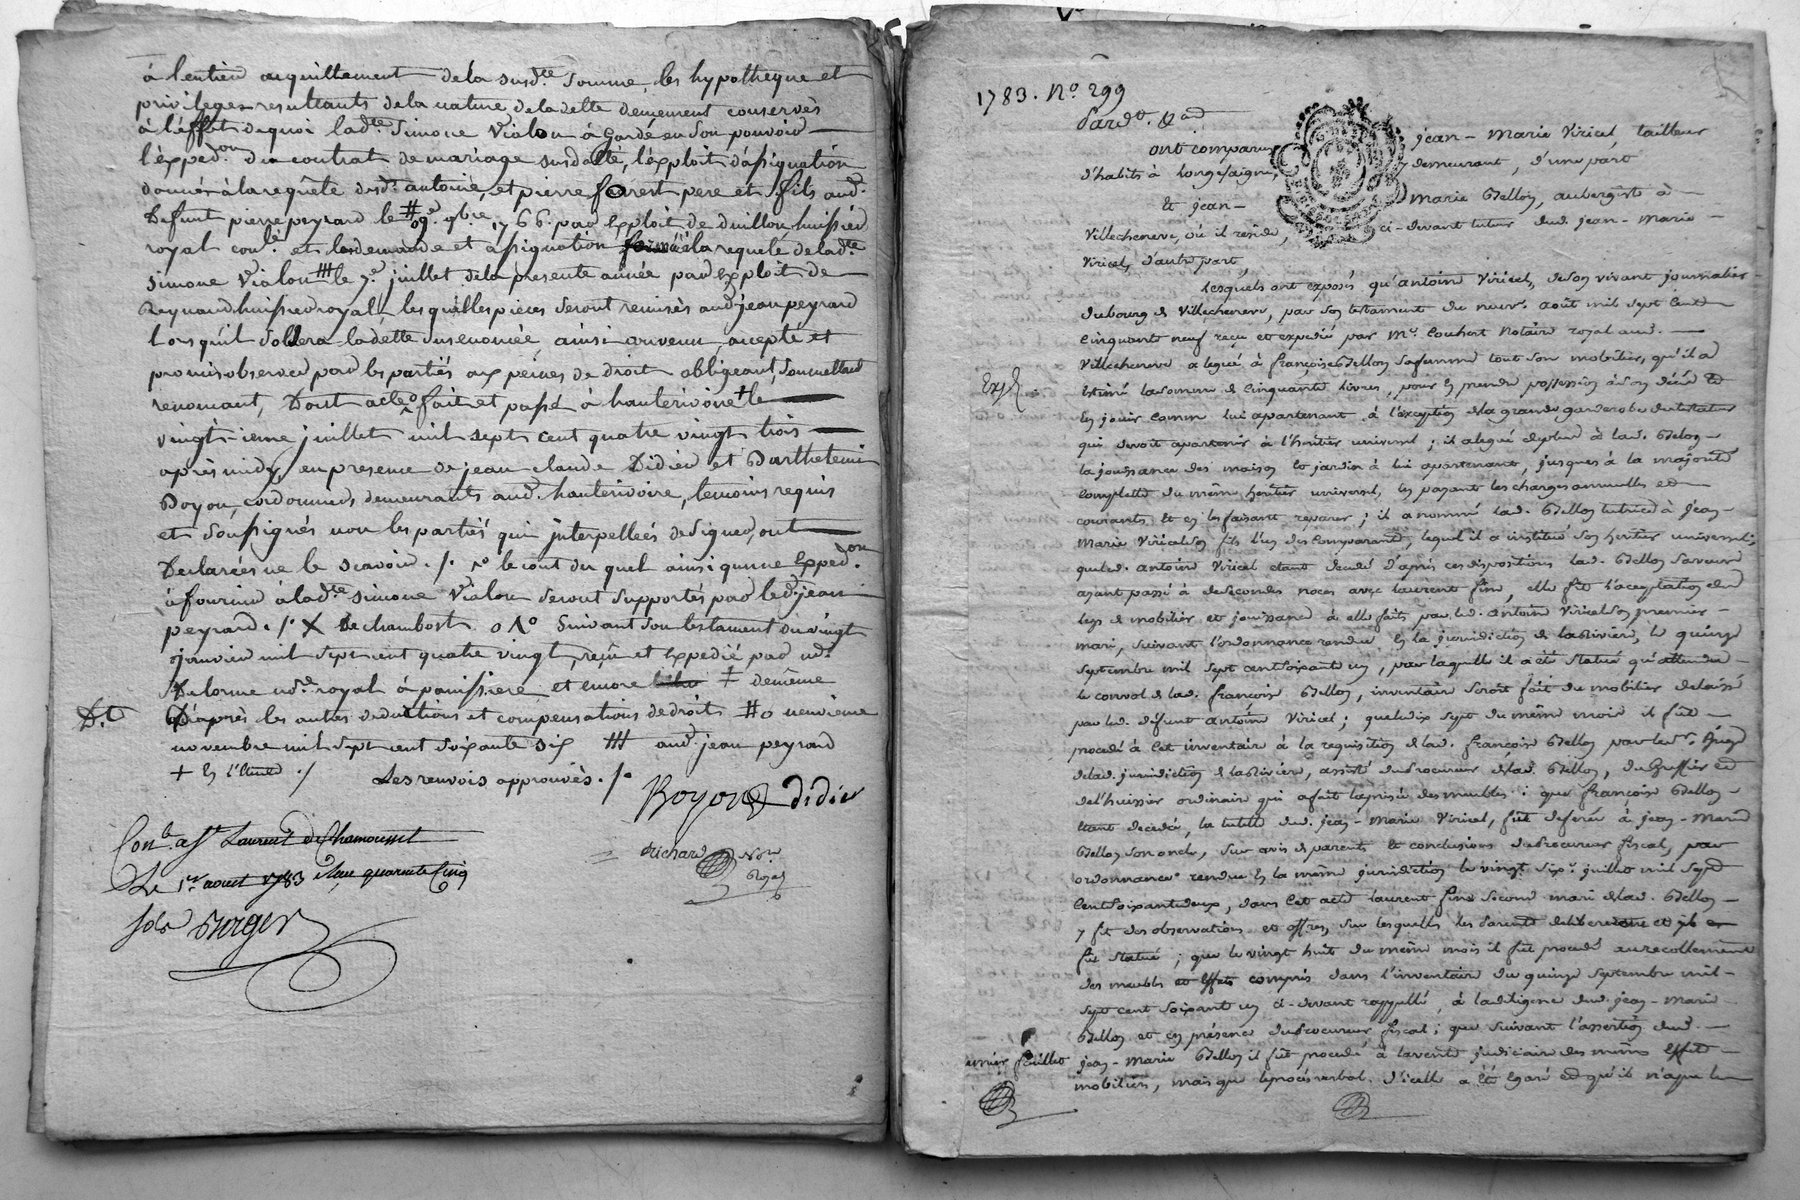 à l'entier acquittement de la susd.te somme, les hypotheque et
privileges resultants de la nature de la dette demeurent conservés
à l'éffet de quoi lad.te Simone Vialon à gardé en son pouvoir
l'expéd.on du contrat de mariage susdatté, l'éxploit d'assignation
donnée à la requête desd.s antoine, et pierre ferrest pere et fils aud.
Defunt pierre peyrard le # 9.e 9bre 1766. par exploit de Duillon huissier
royal et la demande et assignation formée à la requete de lad.te
Simone Vialon ### le 7.e juillet de la presente année par exploit de
Reynaud huissier royal, les quelles pièces seront remises aud. jean peyrard
lorsqu'il soldera la dette susenoncée ainsi convenu, accepté et
promis observer par les partiés aux peines de droit obligeant, soumettant
renoncant, Dont acte fait et passé à hauterivoire + le
vingt-ieme juillet mil sept cent quatre vingt trois
après midy en presence de jean claude Didier et Barthelemi
Boyou, cordonniers, demeurants aud. hauterivoire, temoins requis
et soussignés non les partiés qui interpellées de signer, ont
Declarées ne le scavoir ./. le cout du quel ainsi qu'une Expéd.on
à fournir à lad.te Simone Vialon seront supportés par led. jean
peyrard ./. X De chambost. Suivant son testament du vingt
janvier mil sept cent quatre vingt, reçu et expedié par m.e
Delorme no.re royal à panissiere et encore ‡ de même
D.t D'après les autres deductions et compensations de droits # neuvieme
novembre mil sept cent soixante six ### aud. jean peyrard
+ En l'étude ./. Les renvois approuvés ./.
Boyou Didier
Richard No.re
Royal
Con.lé à S.t Laurent de Chamousset
Le 1.er aout 1783 quarante cinq
sols Berger
1783. N.o 299
Pard.t
ont comparus jean-marie Viricel tailleur
d'habits à longesaigne, y demeurant, d'une part
Et jean-marie Bellon, aubergiste à
Villechenere, où il reside, ci-devant tuteur dud. jean-marie
Viricel, d'autre part,
Lesquels ont exposés qu'antoine Viricel, de son vivant journalier
du bourg de Villechenere, par son testament du neuv.e août mil sept cent
cinquante neuf reçu et expedié par M.e Couhert Notaire royal aud.
Villechenere a legué à françoise Bellon sa femme tout son mobilier, qu'il a
Exp.é
Estimé la somme de cinquante livres, pour en prendre possession à son décès et
en jouir comme lui apartenant à l'exception de la grande garderobe du testateur
qui devoit apartenir à l'heritier universel; il a legué de plus à lad. Bellon
la jouissance des maison et jardin à lui apartenants, jusques à la majorité
complette du même heritier universel, en payant les charges annuelles et
courantes et en les faisant reparer; il a nommé lad. Bellon tutrice à jean-
Marie Viricel son fils l'un des comparants, lequel il a institué son heritier universel;
que led. antoine Viricel étant decedé d'après ces dispositions lad. Bellon sa veuve
ayant passé à de secondes noces avec laurent fine, elle fit l'acceptation du
legs de mobilier et jouissance à elle faits par led. antoine Viricel son premier
mari, suivant l'ordonnance rendue en la jurisdiction de la Riviere, le quinze
septembre mil sept cent soixante un, par laquelle il a été statué qu'attendu
le convol de lad. françoise Bellon, inventaire seroit fait du mobilier delaissé
par led. defunt antoine Viricel; que le dix sept du même mois il fut
procedé à cet inventaire à la requisition de lad. françoise Bellon par le s.r juge
de lad. jurisdiction de la Riviere, assisté du Procureur de lad. Bellon, du Greffier et
de l'huissier ordinaire qui a fait la prisée des meubles: que françoise Bellon
étant decedée, la tutelle dud. jean-Marie Viricel, fut deferée à jean-Marie
Bellon son oncle, sur avis de parents et conclusions du Procureur fiscal, par
ordonnance rendue en la même jurisdiction le vingt six.e juillet mil sept
cent soixante deux, dans cet acte laurent fine second mari de lad. Bellon
y fit des observations et offres, sur lesquelles les parents delibererent et il y
fut statué; que le vingt huit du même mois il fut procedé au recollement
des meubles et effets compris dans l'inventaire du quinze septembre mil
sept cent soixante un ci-devant rappellé, à la diligence dud. jean-Marie
Bellon et en présence du Procureur fiscal; que suivant l'assertion dud.
jean-Marie Bellon il fut procedé à la vente judiciaire des mêmes effets
mobiliers, mais que le procès verbal d'icelle a été egaré et qu'il n'a pu le
premier feuillet